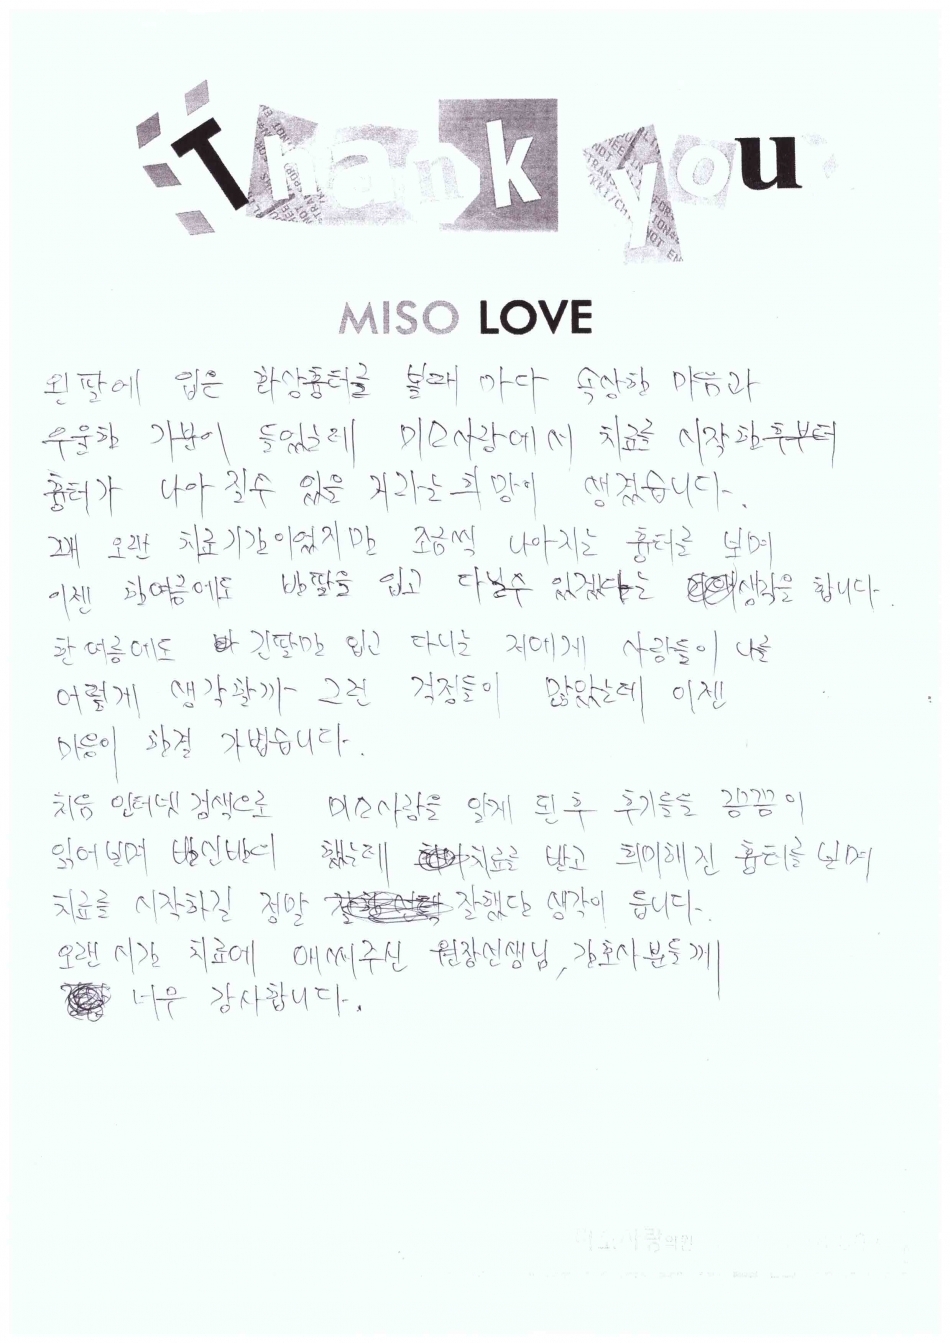 Thank you
MISO LOVE
왼팔에 입은 화상흉터를 볼때 마다 속상한 마음과
우울한 기분이 들었는데 미소사랑에서 치료를 시작한후부터
흉터가 나아 질수 있을 거라는 희망이 생겼습니다.
꽤 오랜 치료기간이었지만 조금씩 나아지는 흉터를 보며
이젠 한여름에도 반팔을 입고 다닐수 있겠다는 생각을 합니다.
한여름에도 긴팔만 입고 다니는 저에게 사람들이 나를
어떻게 생각할까 그런 걱정들이 많았는데 이젠
마음이 한결 가볍습니다.
처음 인터넷 검색으로 미소사랑을 알게 된후 후기들을 꼼꼼이
읽어보며 반신반의 했는데 치료를 받고 희미해진 흉터를 보며
치료를 시작하길 정말 잘했단 생각이 듭니다.
오랜시간 치료에 애써주신 원장선생님, 간호사분들께
너무 감사합니다.